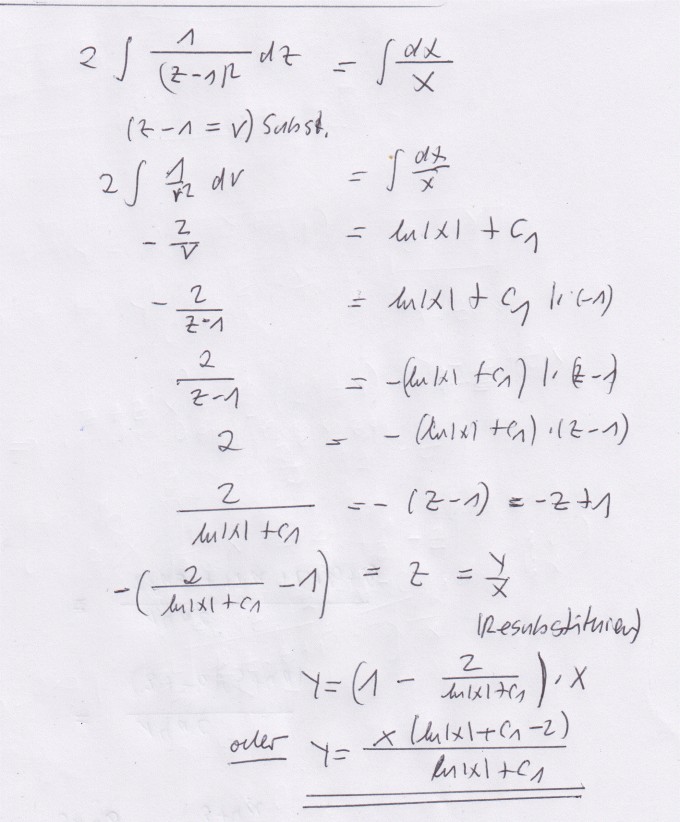 2 ∫ 1/(z-1)² dz = ∫ dx/x
(z-1 = v) Subst.
2 ∫ 1/v² dv = ∫ dx/x
- 2/v = ln|x| + C₁
- 2/(z-1) = ln|x| + C₁ |·(-1)
2/(z-1) = -(ln|x| + C₁) |·(z-1)
2 = -(ln|x| + C₁)·(z-1)
2/(ln|x| + C₁) = -(z-1) = -z+1
-(2/(ln|x| + C₁) - 1) = z = y/x
(Resubstituieren)
y = (1 - 2/(ln|x| + C₁))·x
oder y = x(ln|x| + C₁ - 2)/(ln|x| + C₁)